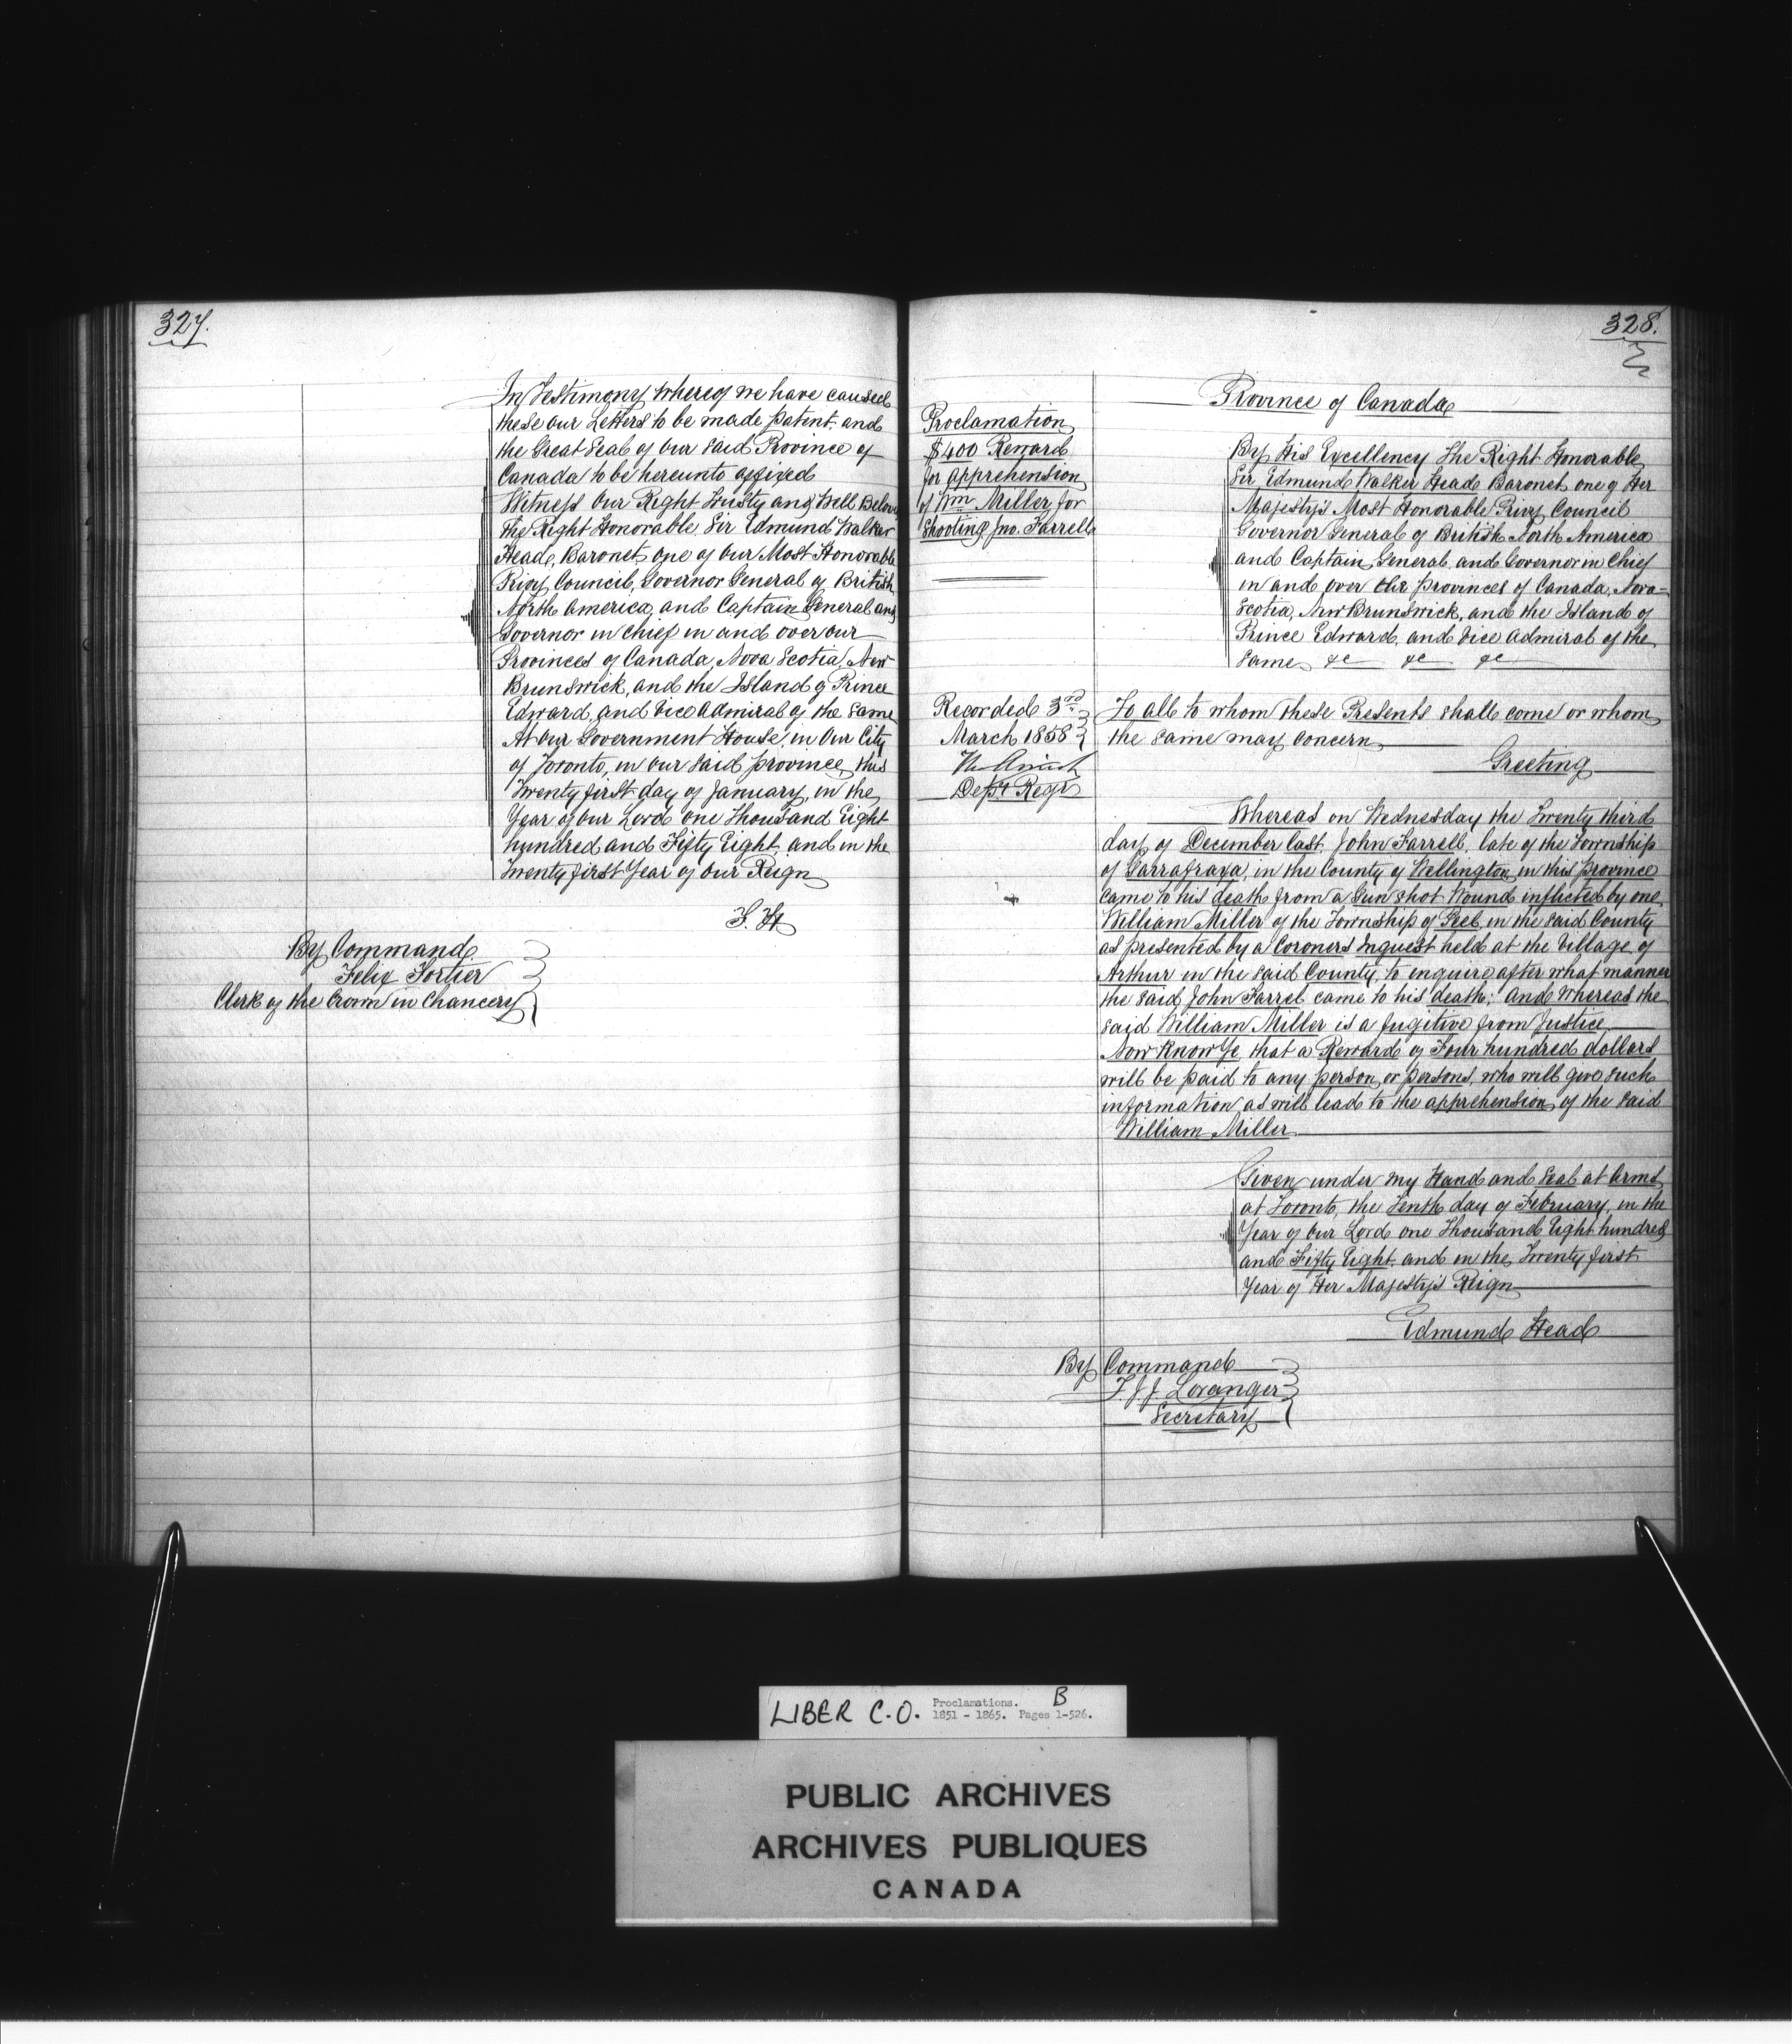 327.
In Testimony whereof we have caused
these our Letters to be made patent and
the Great Seal of our said Province of
Canada to be hereunto affixed
Witness Our Right Trusty and Well Belov
the Right Honorable Sir Edmund Walker
Head, Baronet, one of our Most Honorable
Privy Council, Governor General of British
North America, and Captain General and
Governor in Chief in and over our
Provinces of Canada, Nova Scotia, New
Brunswick, and the Island of Prince
Edward, and Vice Admiral of the same
At our Government House, in Our City
of Toronto, in our said province, this
Twenty first day of January, in the
Year of our Lord one Thousand Eight
hundred and Fifty Eight, and in the
Twenty first Year of our Reign
By Command
Felix Fortier
Clerk of the Crown in Chancery
328.
Proclamation
$400 Reward
for apprehension
of Wm. Miller for
Shooting Jno. Farrell
Recorded 3rd
March 1858
Depy. Regr.
Province of Canada
By His Excellency The Right Honorable
Sir Edmund Walker Head Baronet one of Her
Majesty's Most Honorable Privy Council
Governor General of British North America
and Captain General and Governor in Chief
in and over the provinces of Canada, Nova-
Scotia, New Brunswick, and the Island of
Prince Edward, and Vice Admiral of the
same &c &c &c
To all to whom these Presents shall come or whom
the same may concern
Greeting
Whereas on Wednesday the Twenty third
day of December last, John Farrell, late of the Township
of Garrafraxa, in the County of Wellington in this province
came to his death from a Gun shot Wound inflicted by one,
William Miller of the Township of Peel, in the said County
as presented by a Coroners Inquest held at the Village of
Arthur in the said County, to enquire after what manner
the said John Farrel came to his death; And Whereas the
said William Miller is a fugitive from Justice
Now Know Ye, that a Reward of Four hundred dollars
will be paid to any person, or persons, who will give such
information as will lead to the apprehension of the said
William Miller
Given under my Hand and Seal at Arms
at Toronto, the Tenth day of February, in the
Year of Our Lord one Thousand Eight hundred
and Fifty Eight, and in the Twenty first
Year of Her Majesty's Reign
Edmund Head
By Command
T. J. J. Loranger
Secretary
LIBER C.O. Proclamations. B
1851 - 1865. Pages 1-526.
PUBLIC ARCHIVES
ARCHIVES PUBLIQUES
CANADA